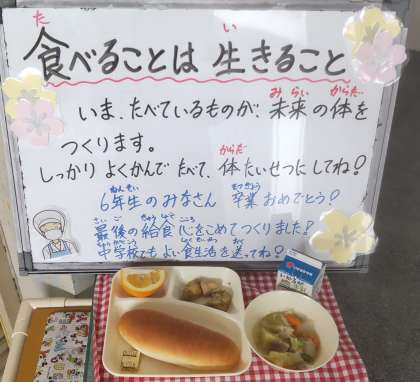 食べることは 生きること
いま、たべているものが、未来の体を
つくります。
しっかり よくかんで たべて、体 たいせつに してね!
6年生のみなさん 卒業 おめでとう!
最後の給食 心をこめてつくりました!
中学校でも よい食生活を 送ってね!